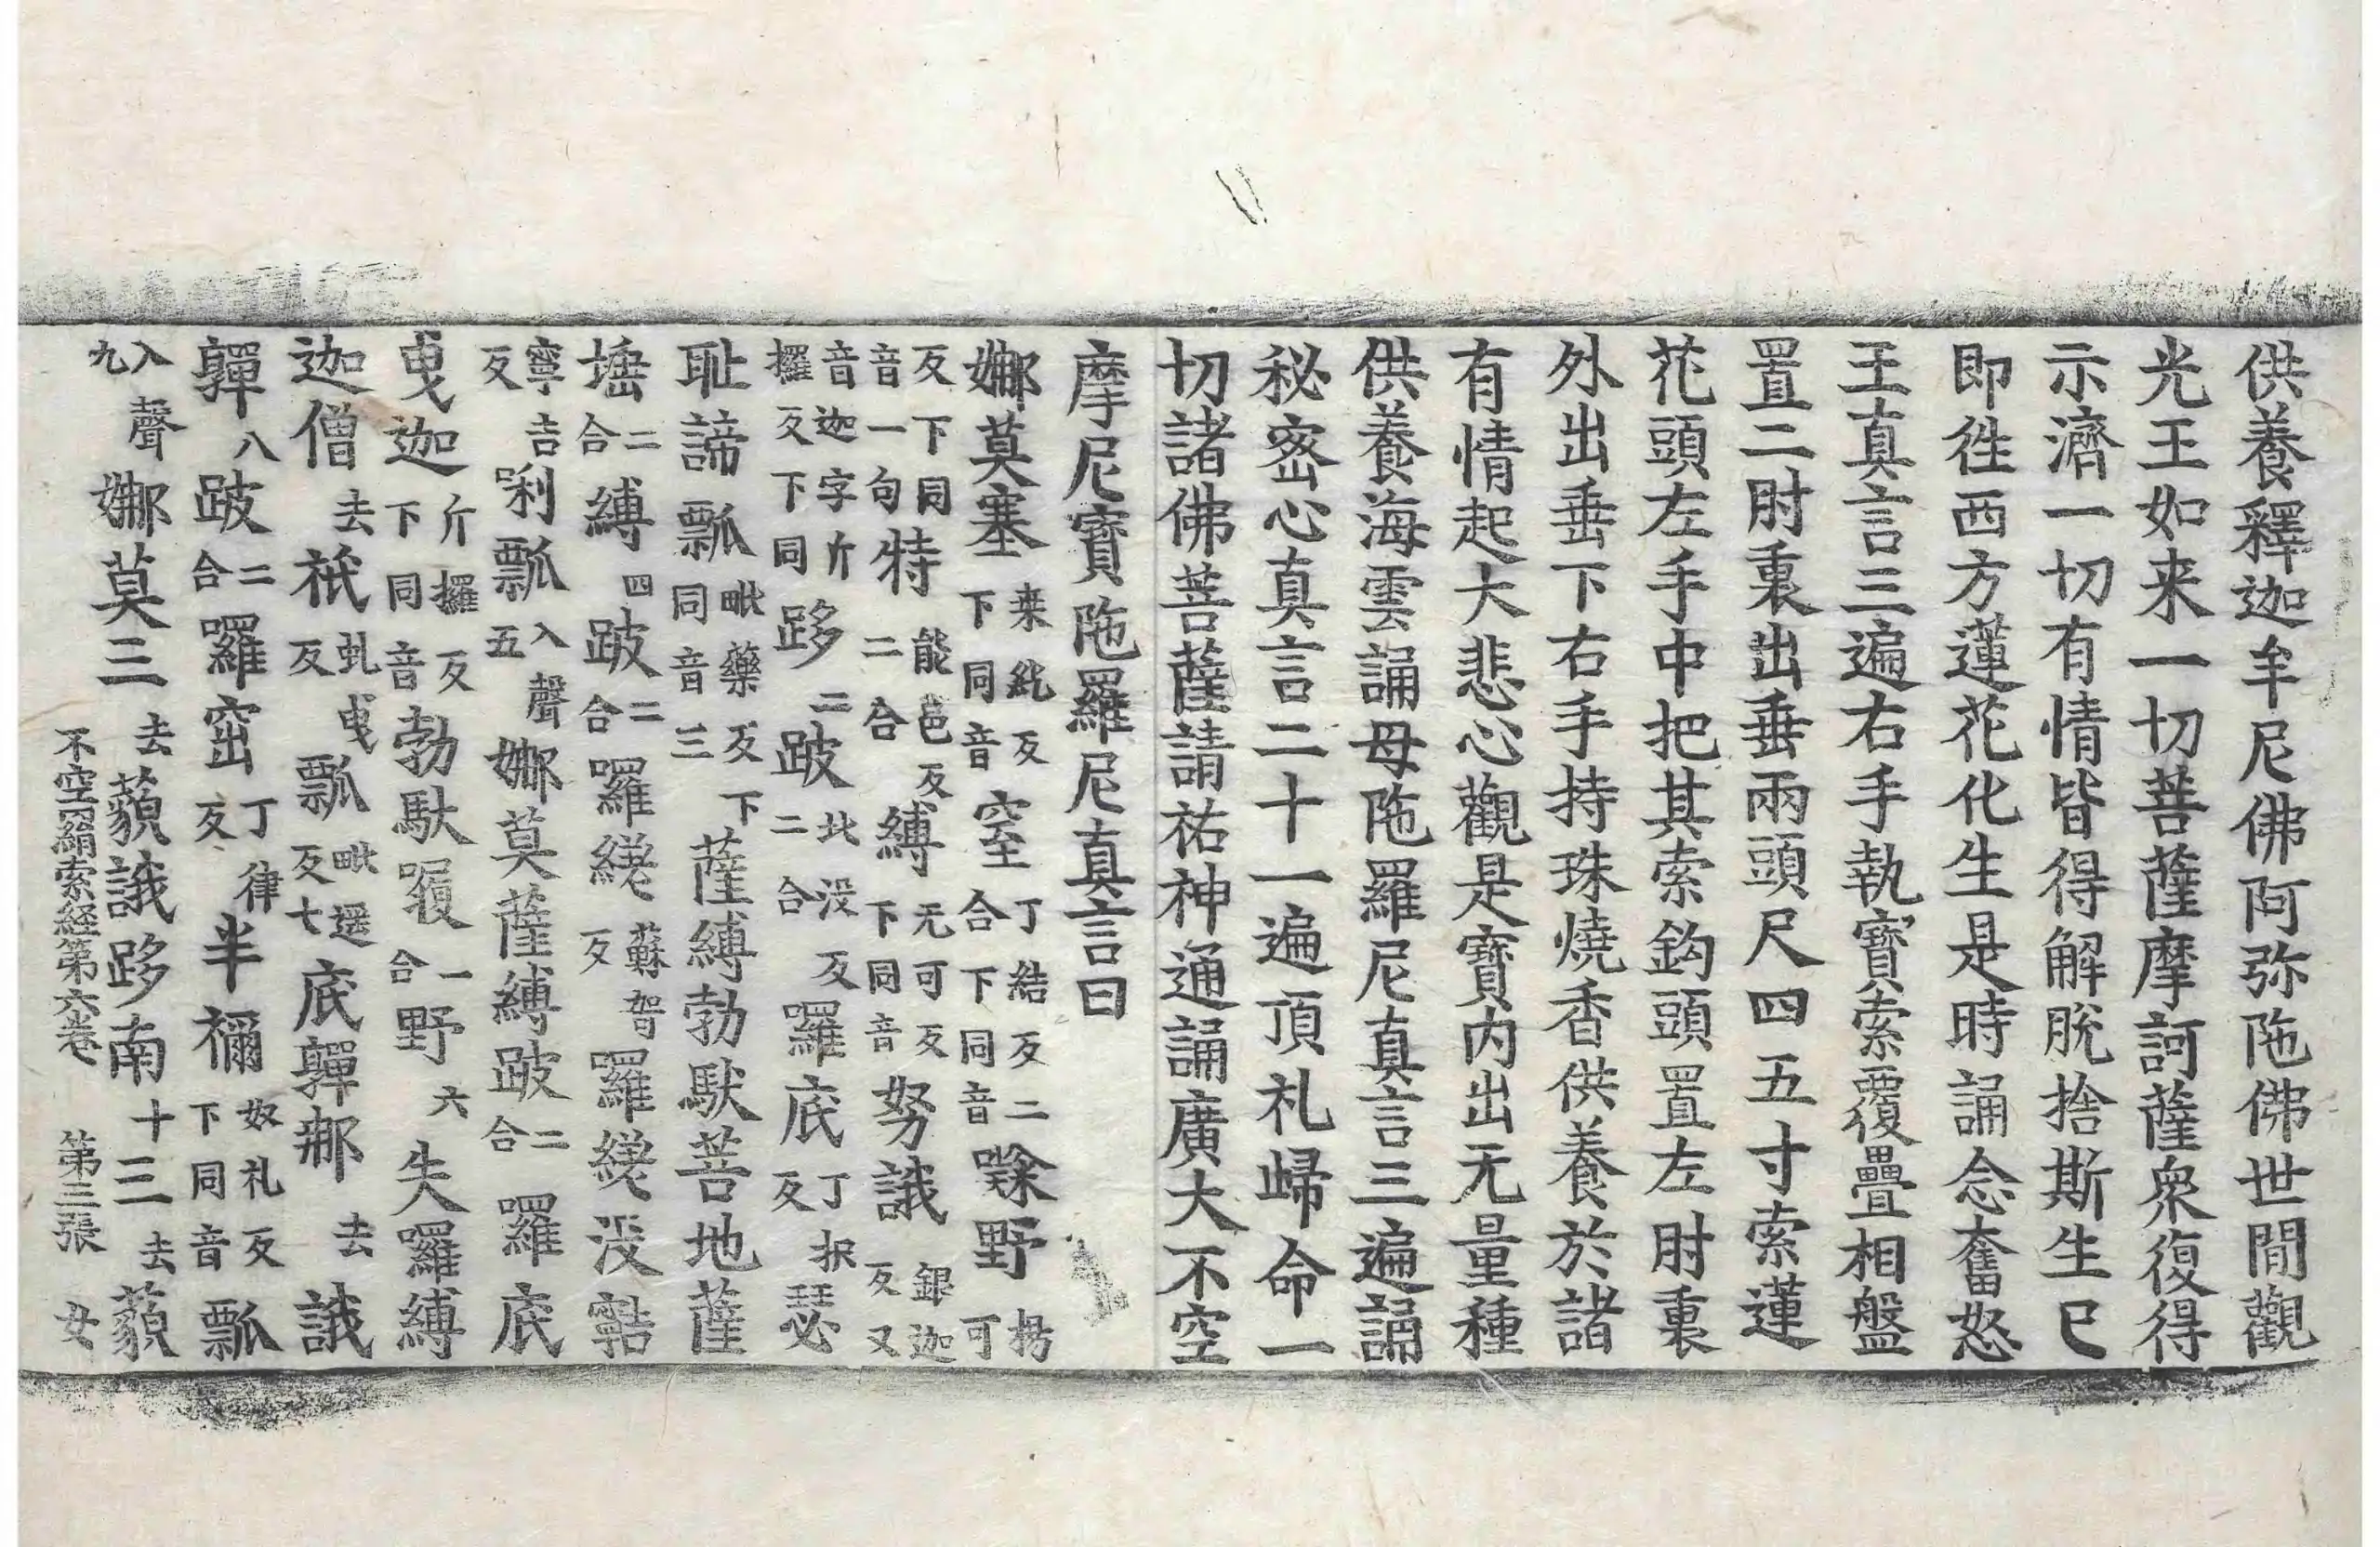 供養釋迦牟尼佛阿弥陁佛世間觀
光王如来一切菩薩摩訶薩衆復得
示濟一切有情皆得解脫捨斯生已
即徃西方蓮花化生是時誦念奮怒
王真言三遍右手執寶索覆疊相盤
置二肘裏出垂兩頭尺四五寸索蓮
花頭左手中把其索鈎頭置左肘裏
外出垂下右手持珠燒香供養於諸
有情起大悲心觀是寶内出无量種
供養海雲誦母陁羅尼真言三遍誦
秘密心真言二十一遍頂礼歸命一
切諸佛菩薩請祐神通誦廣大不空
摩尼寶陁羅尼真言曰
娜莫塞桒紇反下同音窒丁結反二合下同音㘑野柺可
反下同音一句特能邑反二合縛无可反下同音努誐銀迦反又
音迦字斤攞反下同跢二跛北没反二合囉底丁柅反瑟
耻諦瓢毗藥反下同音三薩縛勃馱菩地薩
埵二合縛四跛二合囉繤蘇㗎反囉繤没
寧吉反唎瓢入聲五娜莫薩縛跛二合囉底
曳迦斤攞反下同音勃馱一合野六失囉縛
迦僧去祇虬曳反瓢毗遥反七底嚲那去誐
嚲八跛二合囉窋丁律反半禰奴礼反下同音瓢
入聲九娜莫三去藐誐跢南十三去藐
不空羂索経第六卷　第三張　女